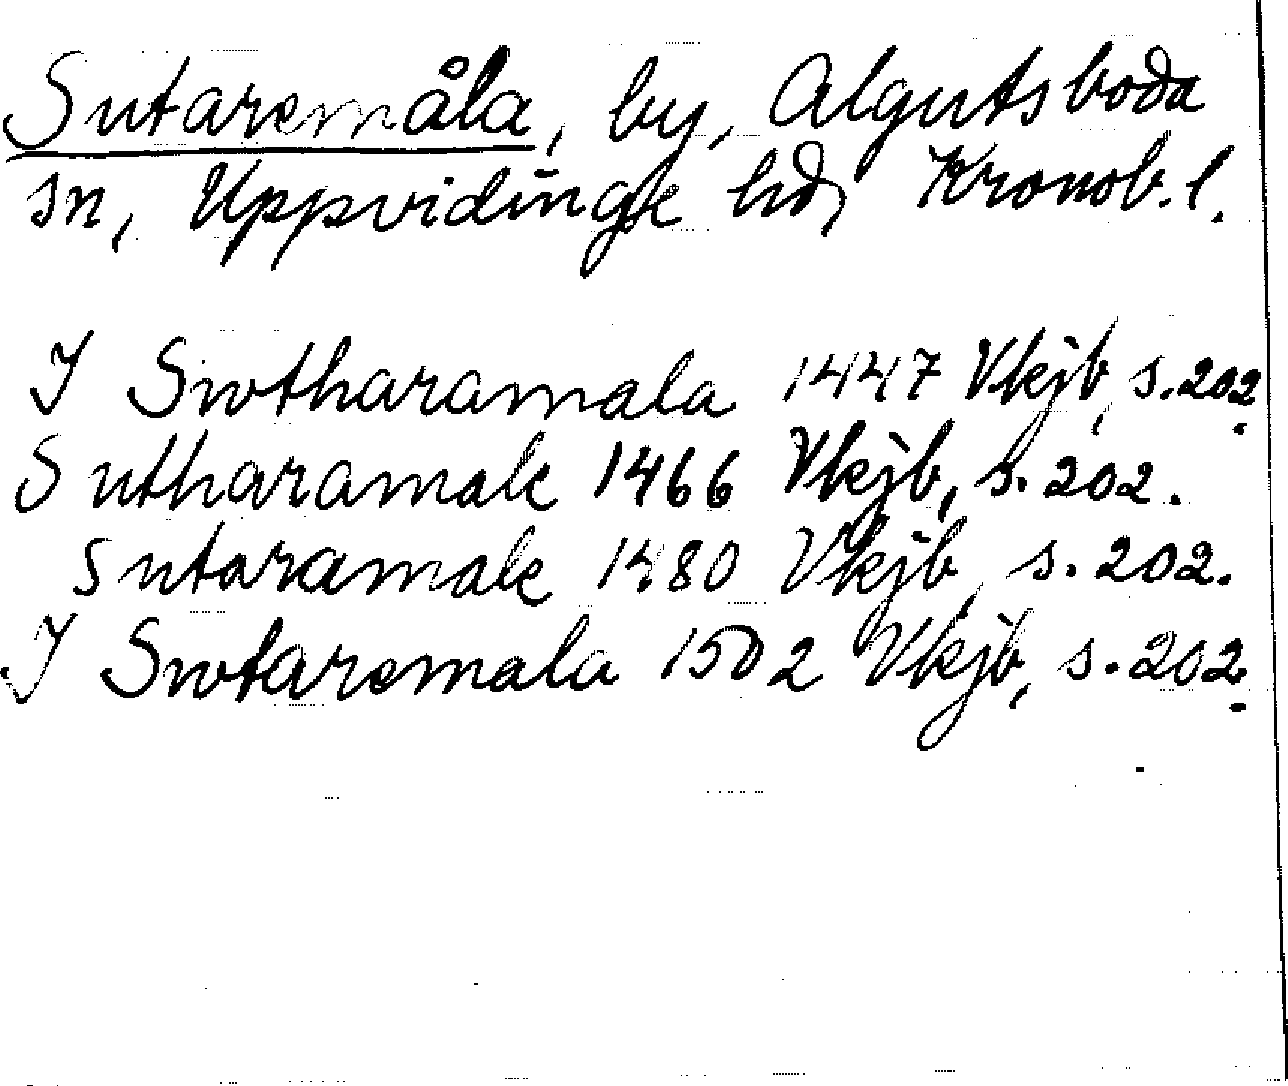 Sutaremåla, by, Algutsboda
sn, Uppvidinge hd, Kronob. l.
I Swtharamala 1447 Vkjb, s. 202.
Sutharamale 1466 Vkjb, s. 202.
Sutaramale 1480 Vkjb, s. 202.
I Swtaremala 1502 Vkjb, s. 202.